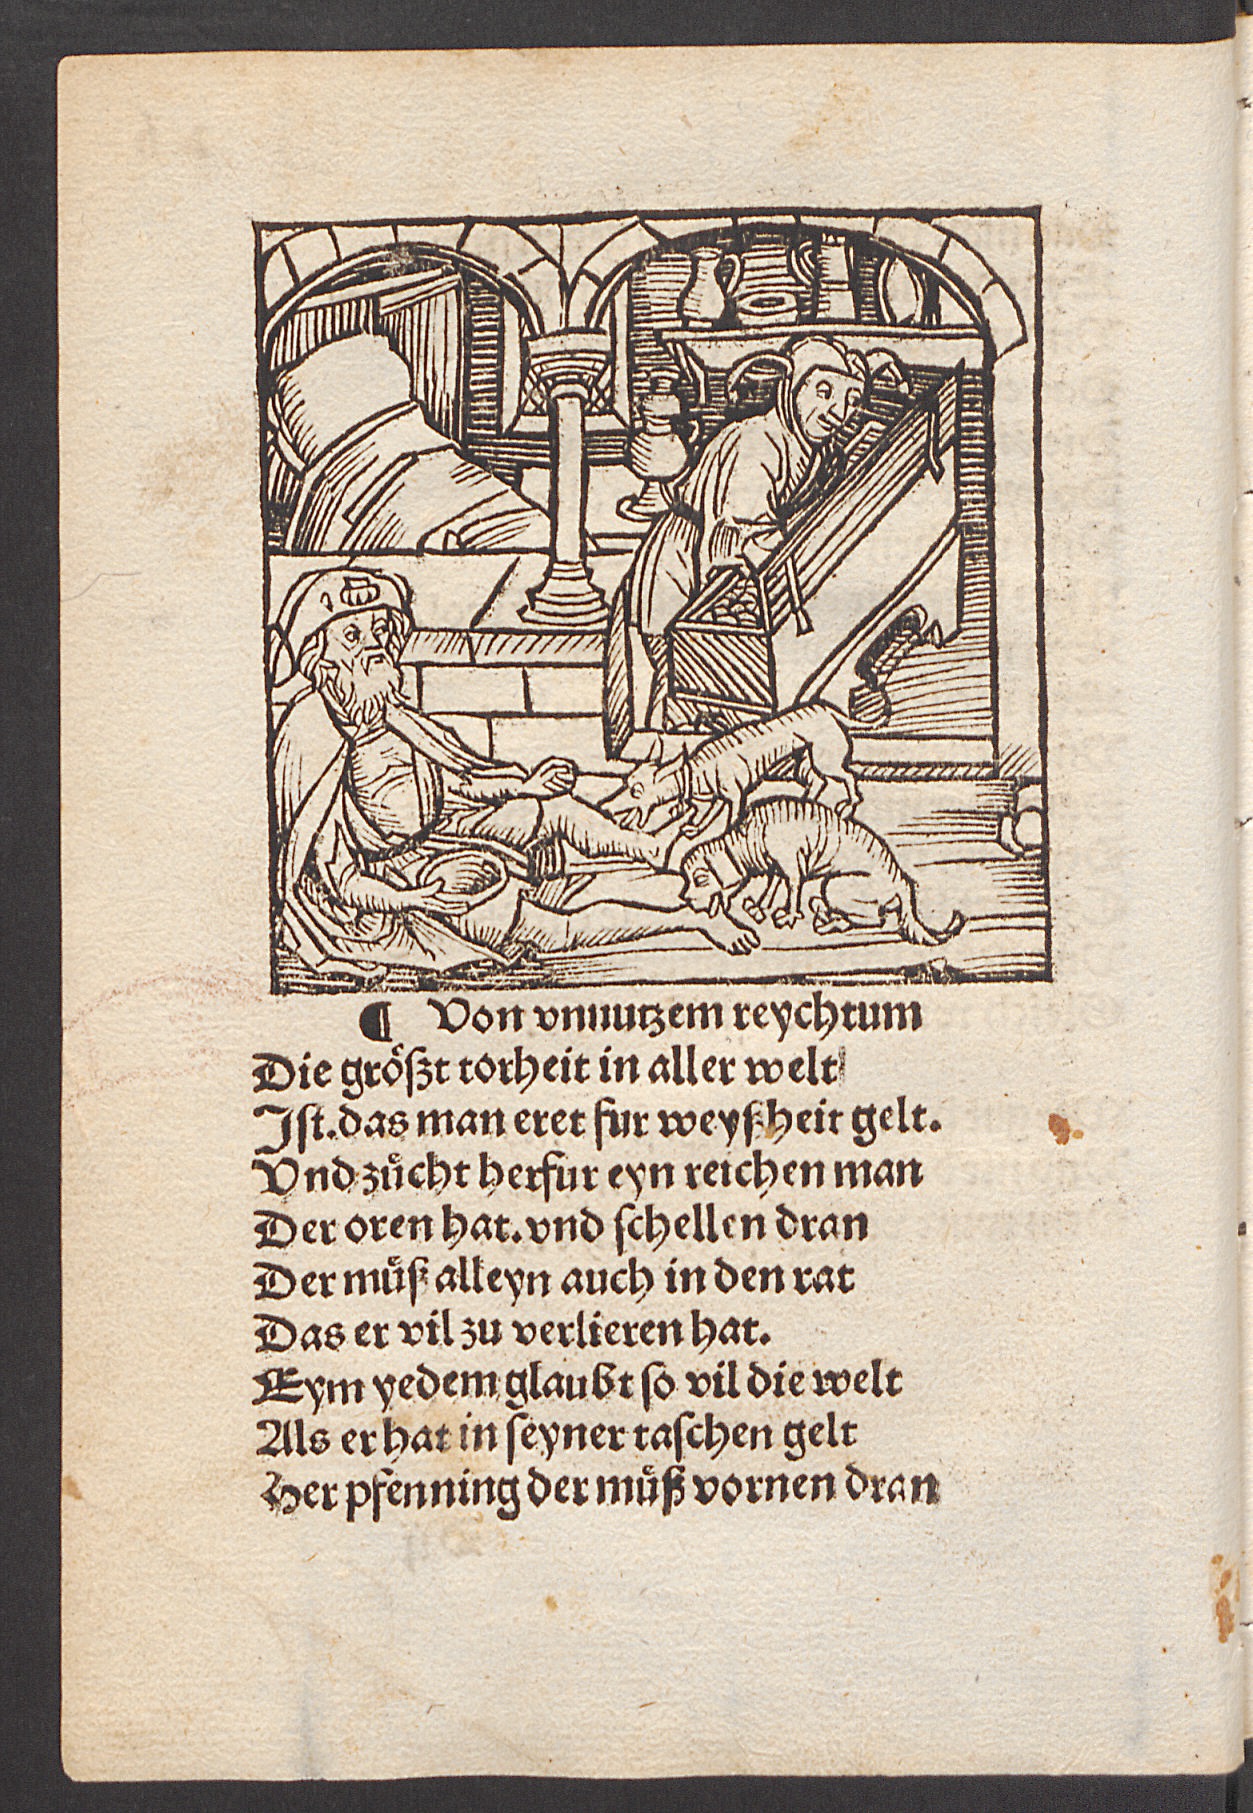 ¶ Von vnnutzem reychtum
Die groͤſzt torheit in aller welt
Iſt.das man eret fur weyſzheit gelt.
Vnd zuͤcht herfur eyn reichen man
Der oren hat.vnd ſchellen dran
Der muͤſz alleyn auch in den rat
Das er vil zu verlieren hat.
Eym yedem glaubt ſo vil die welt
Als er hat in ſeyner taſchen gelt
Her pfenning der muͤſz vornen dran